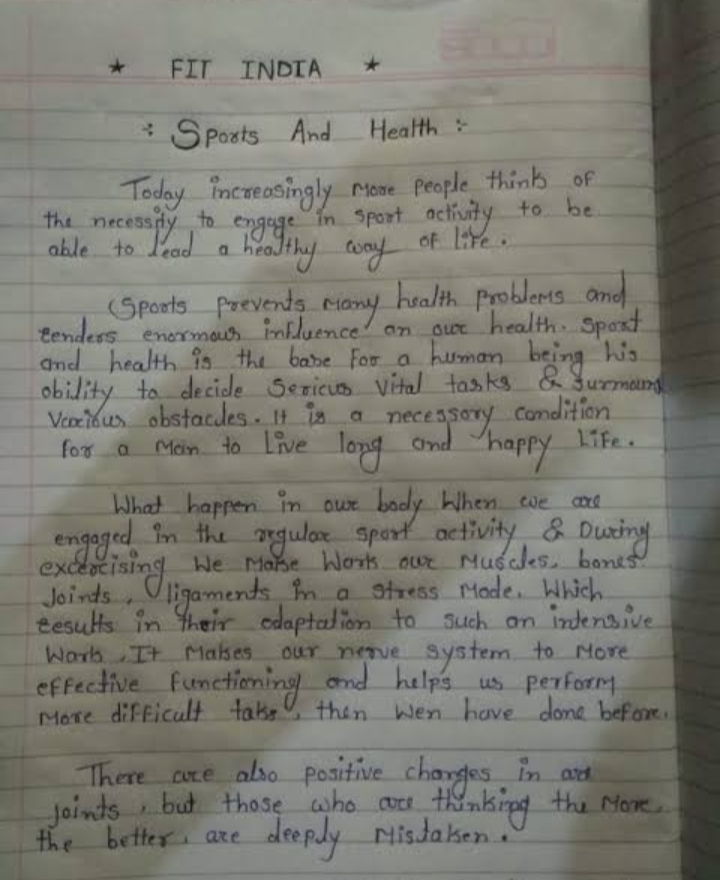 * FIT INDIA *
÷ Sports And Health ÷
Today increasingly more people think of
the necessity to engage in sport activity to be
able to lead a healthy way of life.
(Sports prevents many health problems and
renders enormous influence on our health. Sport
and health is the base for a human being his
ability to decide Serious vital tasks & Surmount
various obstacles. It is a necessary condition
for a man to live long and happy life.
What happen in our body when we are
engaged in the regular sport activity & During
excercising we make work our muscles, bones.
Joints, ligaments in a stress mode. Which
results in their adaptation to such an intensive
work. It makes our nerve system to more
effective functioning and helps us perform
more difficult taks, then wen have done before.
There are also positive changes in
joints, but those who are thinking the more,
the better, are deeply mistaken.